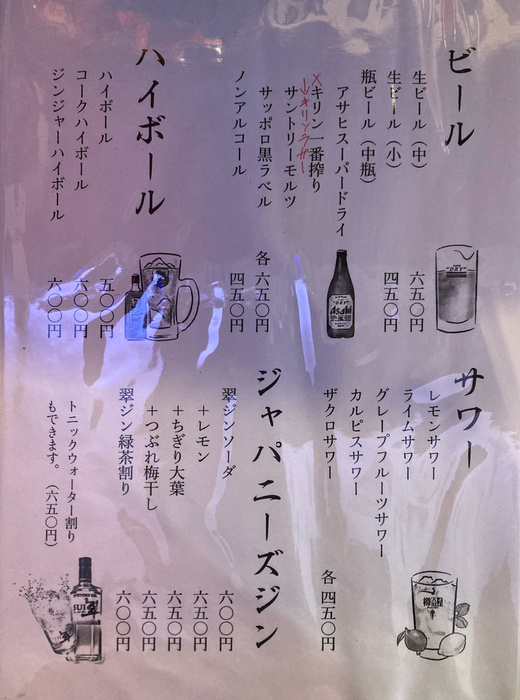 ビール
生ビール（中）
六五〇円
生ビール（小）
四五〇円
瓶ビール（中瓶）
アサヒスーパードライ
キリン一番搾り
×
↓キリンラガー
サントリーモルツ
サッポロ黒ラベル
各 六五〇円
ノンアルコール
四五〇円
ハイボール
ハイボール
五〇〇円
コークハイボール
六〇〇円
ジンジャーハイボール
六〇〇円
サワー
レモンサワー
ライムサワー
グレープフルーツサワー
カルピスサワー
ザクロサワー
各 四五〇円
ジャパニーズジン
翠ジンソーダ
六〇〇円
＋レモン
六五〇円
＋ちぎり大葉
六五〇円
＋つぶれ梅干し
六五〇円
翠ジン緑茶割り
六〇〇円
トニックウォーター割り
もできます。（六五〇円）
DRY
Asahi
SUI
翠